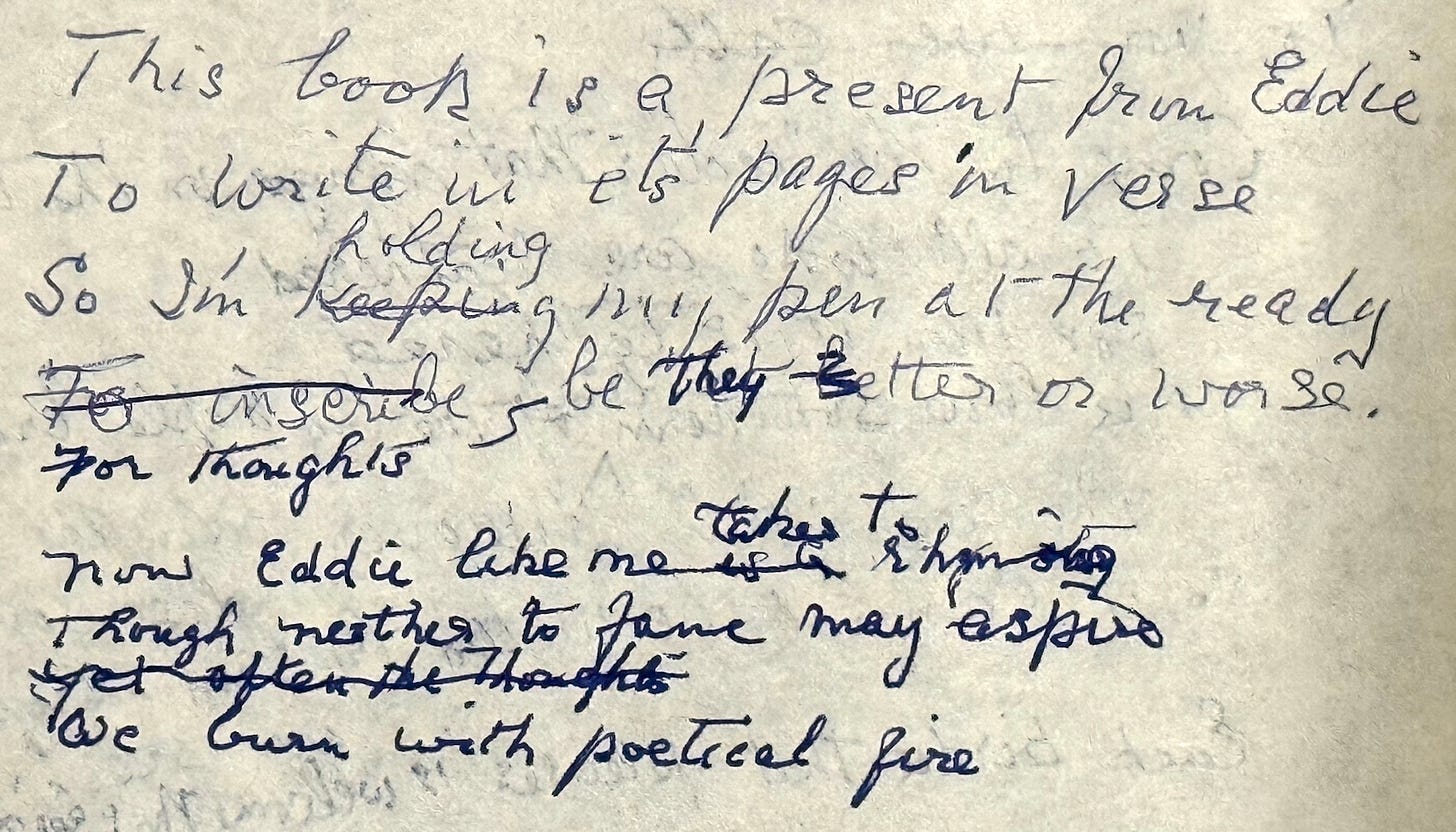 This book is a present from Eddie
To write in its' pages in verse
holding
So I'm keeping my pen at the ready
To inscribe, be they better or worse.
For thoughts
takes to
Now Eddie like me is a rhyming
Though neither to fame may aspire
Yet often the thoughts
We burn with poetical fire